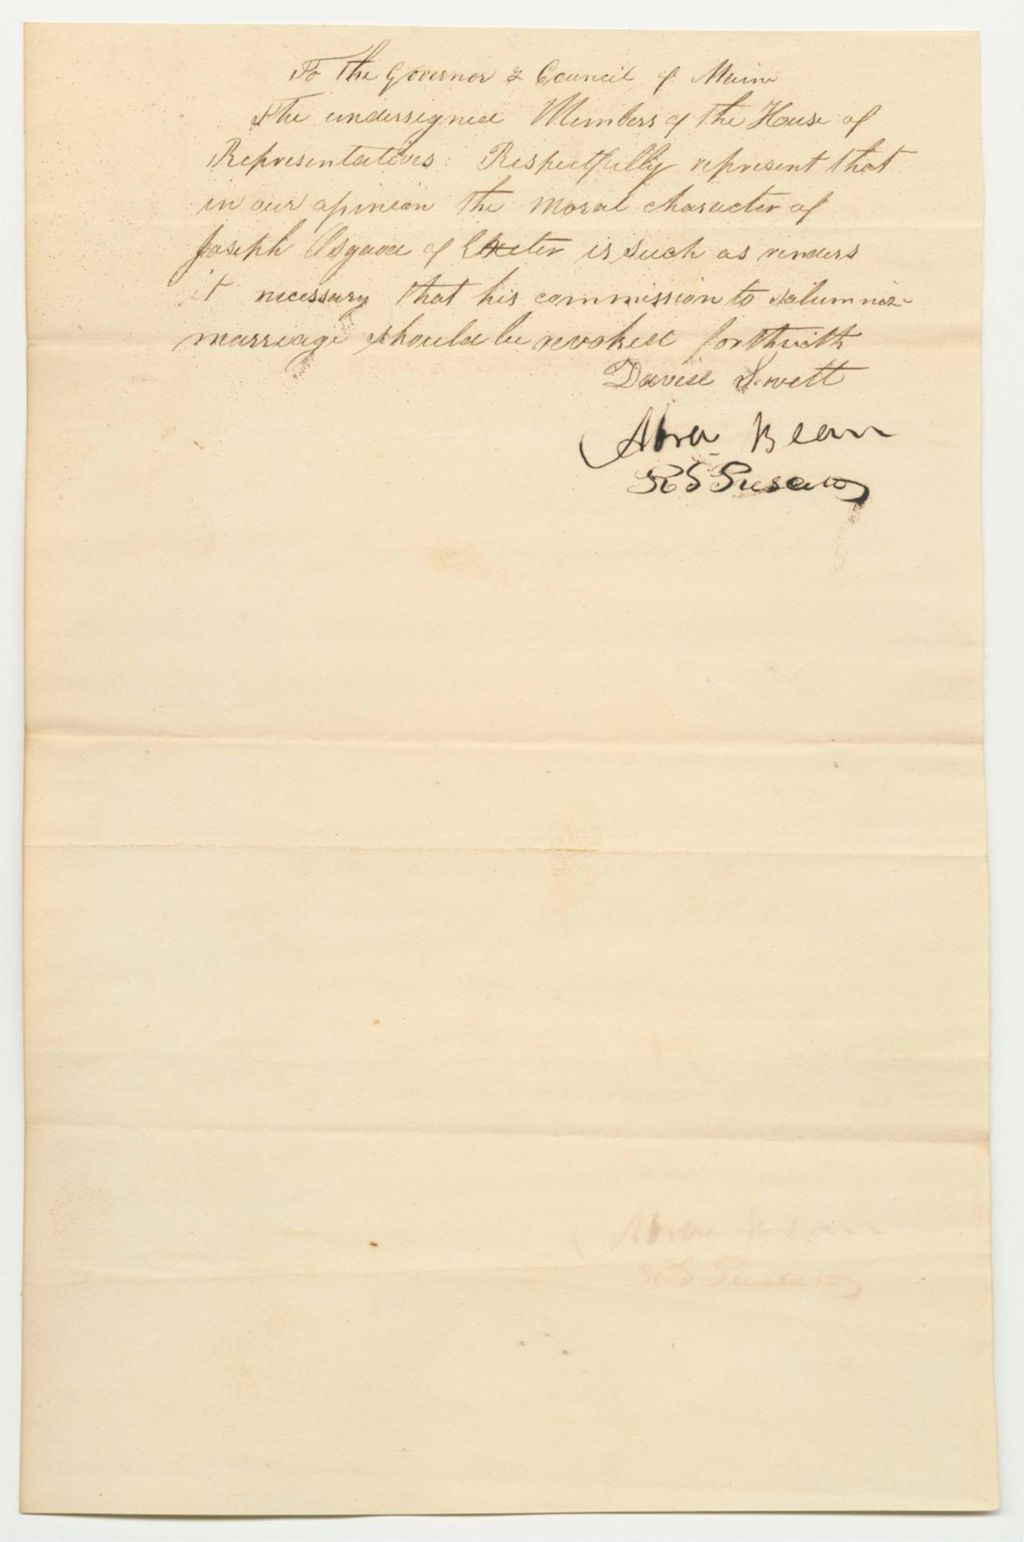 To the Governor & Council of Maine
The undersigned Members of the House of
Representatives Respectfully represent that
in our opinion the moral character of
Joseph Osgood of Exeter is such as renders
it necessary that his commission to salumniz-
marriage should be revoked forthwith
David Swett
Abra Bean